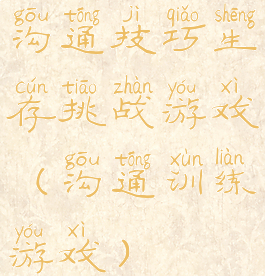 gōu tōng jì qiǎo shēng
沟通技巧生
cún tiāo zhàn yóu xì
存挑战游戏
gōu tōng xùn liàn
（沟通训练
yóu xì
游戏）